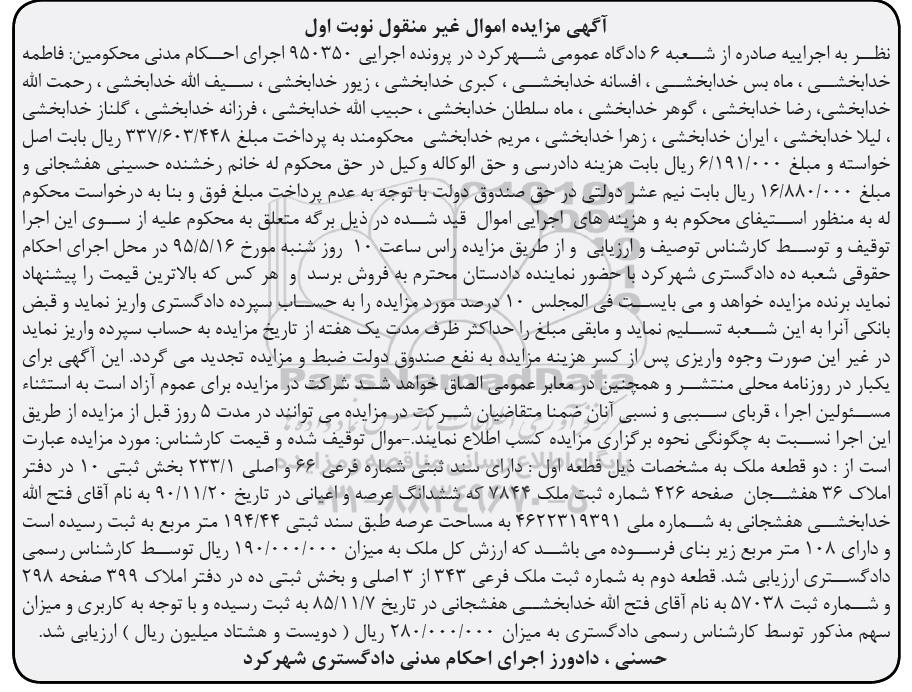 آگهی مزایده اموال غیر منقول نوبت اول
نظر به اجراییه صادره از شعبه ۶ دادگاه عمومی شهرکرد در پرونده اجرایی ۹۵۰۳۵۰ اجرای احکام مدنی محکومین: فاطمه
خدابخشی ، ماه بس خدابخشی ، افسانه خدابخشی ، کبری خدابخشی ، زیور خدابخشی ، سیف الله خدابخشی ، رحمت الله
خدابخشی، رضا خدابخشی ، گوهر خدابخشی ، ماه سلطان خدابخشی ، حبیب الله خدابخشی ، فرزانه خدابخشی ، گلناز خدابخشی
، لیلا خدابخشی ، ایران خدابخشی ، زهرا خدابخشی ، مریم خدابخشی محکومند به پرداخت مبلغ ۳۳۷/۶۰۳/۴۴۸ ریال بابت اصل
خواسته و مبلغ ۶/۱۹۱/۰۰۰ ریال بابت هزینه دادرسی و حق الوکاله وکیل در حق محکوم له خانم رخشنده حسینی هفشجانی و
مبلغ ۱۶/۸۸۰/۰۰۰ ریال بابت نیم عشر دولتی در حق صندوق دولت با توجه به عدم پرداخت مبلغ فوق و بنا به درخواست محکوم
له به منظور استیفای محکوم به و هزینه های اجرایی اموال قید شده در ذیل برگه متعلق به محکوم علیه از سوی این اجرا
توقیف و توسط کارشناس توصیف و ارزیابی و از طریق مزایده راس ساعت ۱۰ روز شنبه مورخ ۹۵/۵/۱۶ در محل اجرای احکام
حقوقی شعبه ده دادگستری شهرکرد با حضور نماینده دادستان محترم به فروش برسد و هر کس که بالاترین قیمت را پیشنهاد
نماید برنده مزایده خواهد و می بایست فی المجلس ۱۰ درصد مورد مزایده را به حساب سپرده دادگستری واریز نماید و قبض
بانکی آنرا به این شعبه تسلیم نماید و مابقی مبلغ را حداکثر ظرف مدت یک هفته از تاریخ مزایده به حساب سپرده واریز نماید
در غیر این صورت وجوه واریزی پس از کسر هزینه مزایده به نفع صندوق دولت ضبط و مزایده تجدید می گردد. این آگهی برای
یکبار در روزنامه محلی منتشر و همچنین در معابر عمومی الصاق خواهد شد شرکت در مزایده برای عموم آزاد است به استثناء
مسئولین اجرا ، قربای سببی و نسبی آنان ضمنا متقاضیان شرکت در مزایده می توانند در مدت ۵ روز قبل از مزایده از طریق
این اجرا نسبت به چگونگی نحوه برگزاری مزایده کسب اطلاع نمایند.-موال توقیف شده و قیمت کارشناس: مورد مزایده عبارت
است از : دو قطعه ملک به مشخصات ذیل قطعه اول : دارای سند ثبتی شماره فرعی ۶۶ و اصلی ۲۳۳/۱ بخش ثبتی ۱۰ در دفتر
املاک ۳۶ هفشجان صفحه ۴۲۶ شماره ثبت ملک ۷۸۴۴ که ششدانگ عرصه و اعیانی در تاریخ ۹۰/۱۱/۲۰ به نام آقای فتح الله
خدابخشی هفشجانی به شماره ملی ۴۶۲۲۳۱۹۳۹۱ به مساحت عرصه طبق سند ثبتی ۱۹۴/۴۴ متر مربع به ثبت رسیده است
و دارای ۱۰۸ متر مربع زیر بنای فرسوده می باشد که ارزش کل ملک به میزان ۱۹۰/۰۰۰/۰۰۰ ریال توسط کارشناس رسمی
دادگستری ارزیابی شد. قطعه دوم به شماره ثبت ملک فرعی ۳۴۳ از ۳ اصلی و بخش ثبتی ده در دفتر املاک ۳۹۹ صفحه ۲۹۸
و شماره ثبت ۵۷۰۳۸ به نام آقای فتح الله خدابخشی هفشجانی در تاریخ ۸۵/۱۱/۷ به ثبت رسیده و با توجه به کاربری و میزان
سهم مذکور توسط کارشناس رسمی دادگستری به میزان ۲۸۰/۰۰۰/۰۰۰ ریال ( دویست و هشتاد میلیون ریال ) ارزیابی شد.
حسنی ، دادورز اجرای احکام مدنی دادگستری شهرکرد
ParsNamadData
پایگاه اطلاع رسانی مناقصه و مزایده
۰۲۱-۸۸۳۴۹۶۷۰-۵